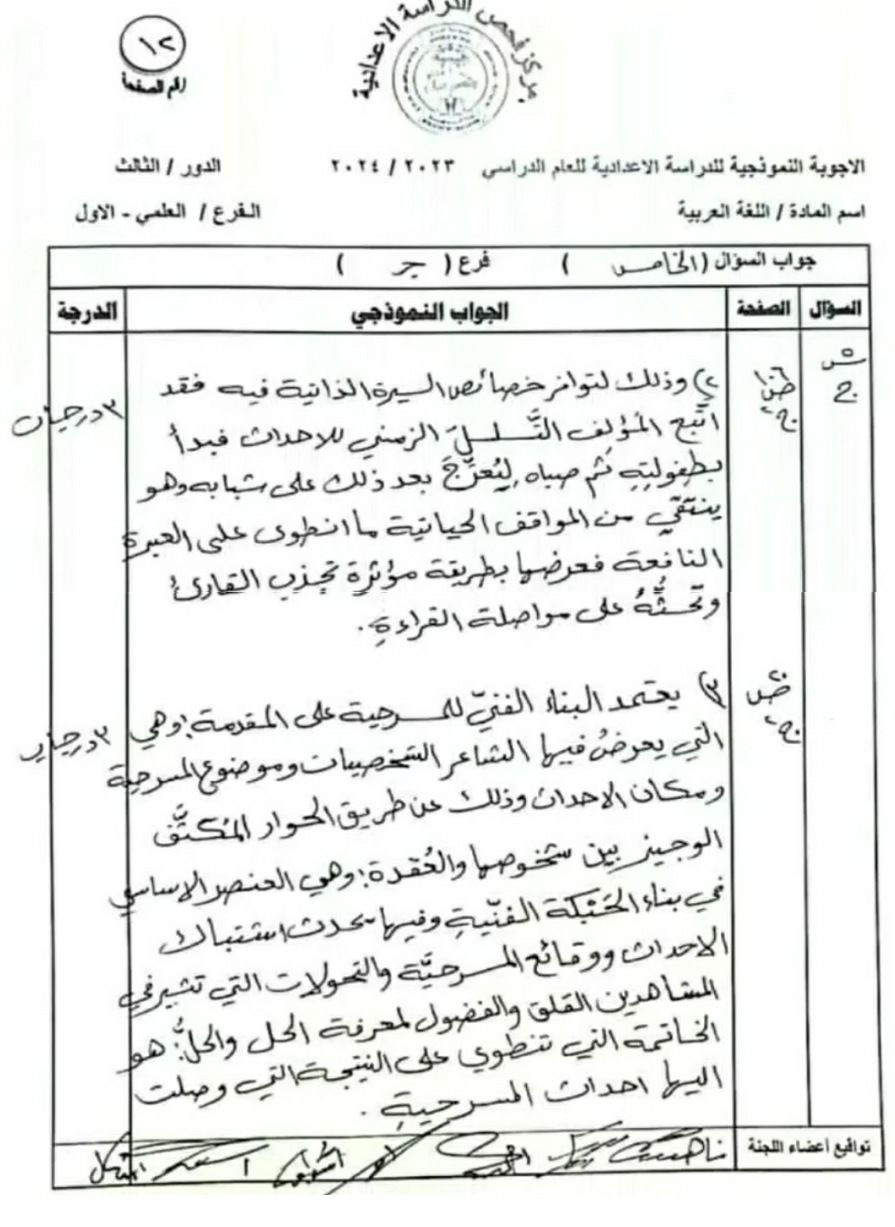 مركز فحص الدراسة الاعدادية
١٢
رقم الصفحة
الاجوبة النموذجية للدراسة الاعدادية للعام الدراسي ٢٠٢٣ / ٢٠٢٤ الدور / الثالث
اسم المادة / اللغة العربية الفرع / العلمي - الاول
جواب السؤال (الخامس) فرع ( جـ )
السؤال الصفحة الجواب النموذجي الدرجة
٢) وذلك لتوافر خصائص السيرة الذاتية فيه فقد
اتّبع المؤلف التَّسلسلَ الزمني للاحداث فبدأ
بطفولتِهِ ثم صباه لِيُعرِّجَ بعد ذلك على شبابه وهو
ينتقي من المواقف الحياتية ما انطوى على العبرة
النافعة فعرضها بطريقة مؤثرة تجذب القارئُ
وتحثُّهُ على مواصلة القراءةِ.
٣ درجات
٣) يعتمد البناء الفنيّ للمسرحية على المقدمة: وهي
التي يعرضُ فيها الشاعر الشخصيات وموضوع المسرحية
ومكان الاحداث وذلك عن طريق الحوار المُكثَّف
الوجيز بين شخوصها والعُقدة: وهي العنصر الاساسي
في بناء الحَبْكة الفنّيةِ وفيها يحدث اشتباك
الاحداث ووقائع المسرحيَّة والتحولات التي تثير في
المشاهدين القلق والفضول لمعرفة الحل والحلُّ: هو
الخاتمة التي تنطوي على النتيجة التي وصلت
اليها احداث المسرحيةِ.
٣ درجات
تواقيع أعضاء اللجنة